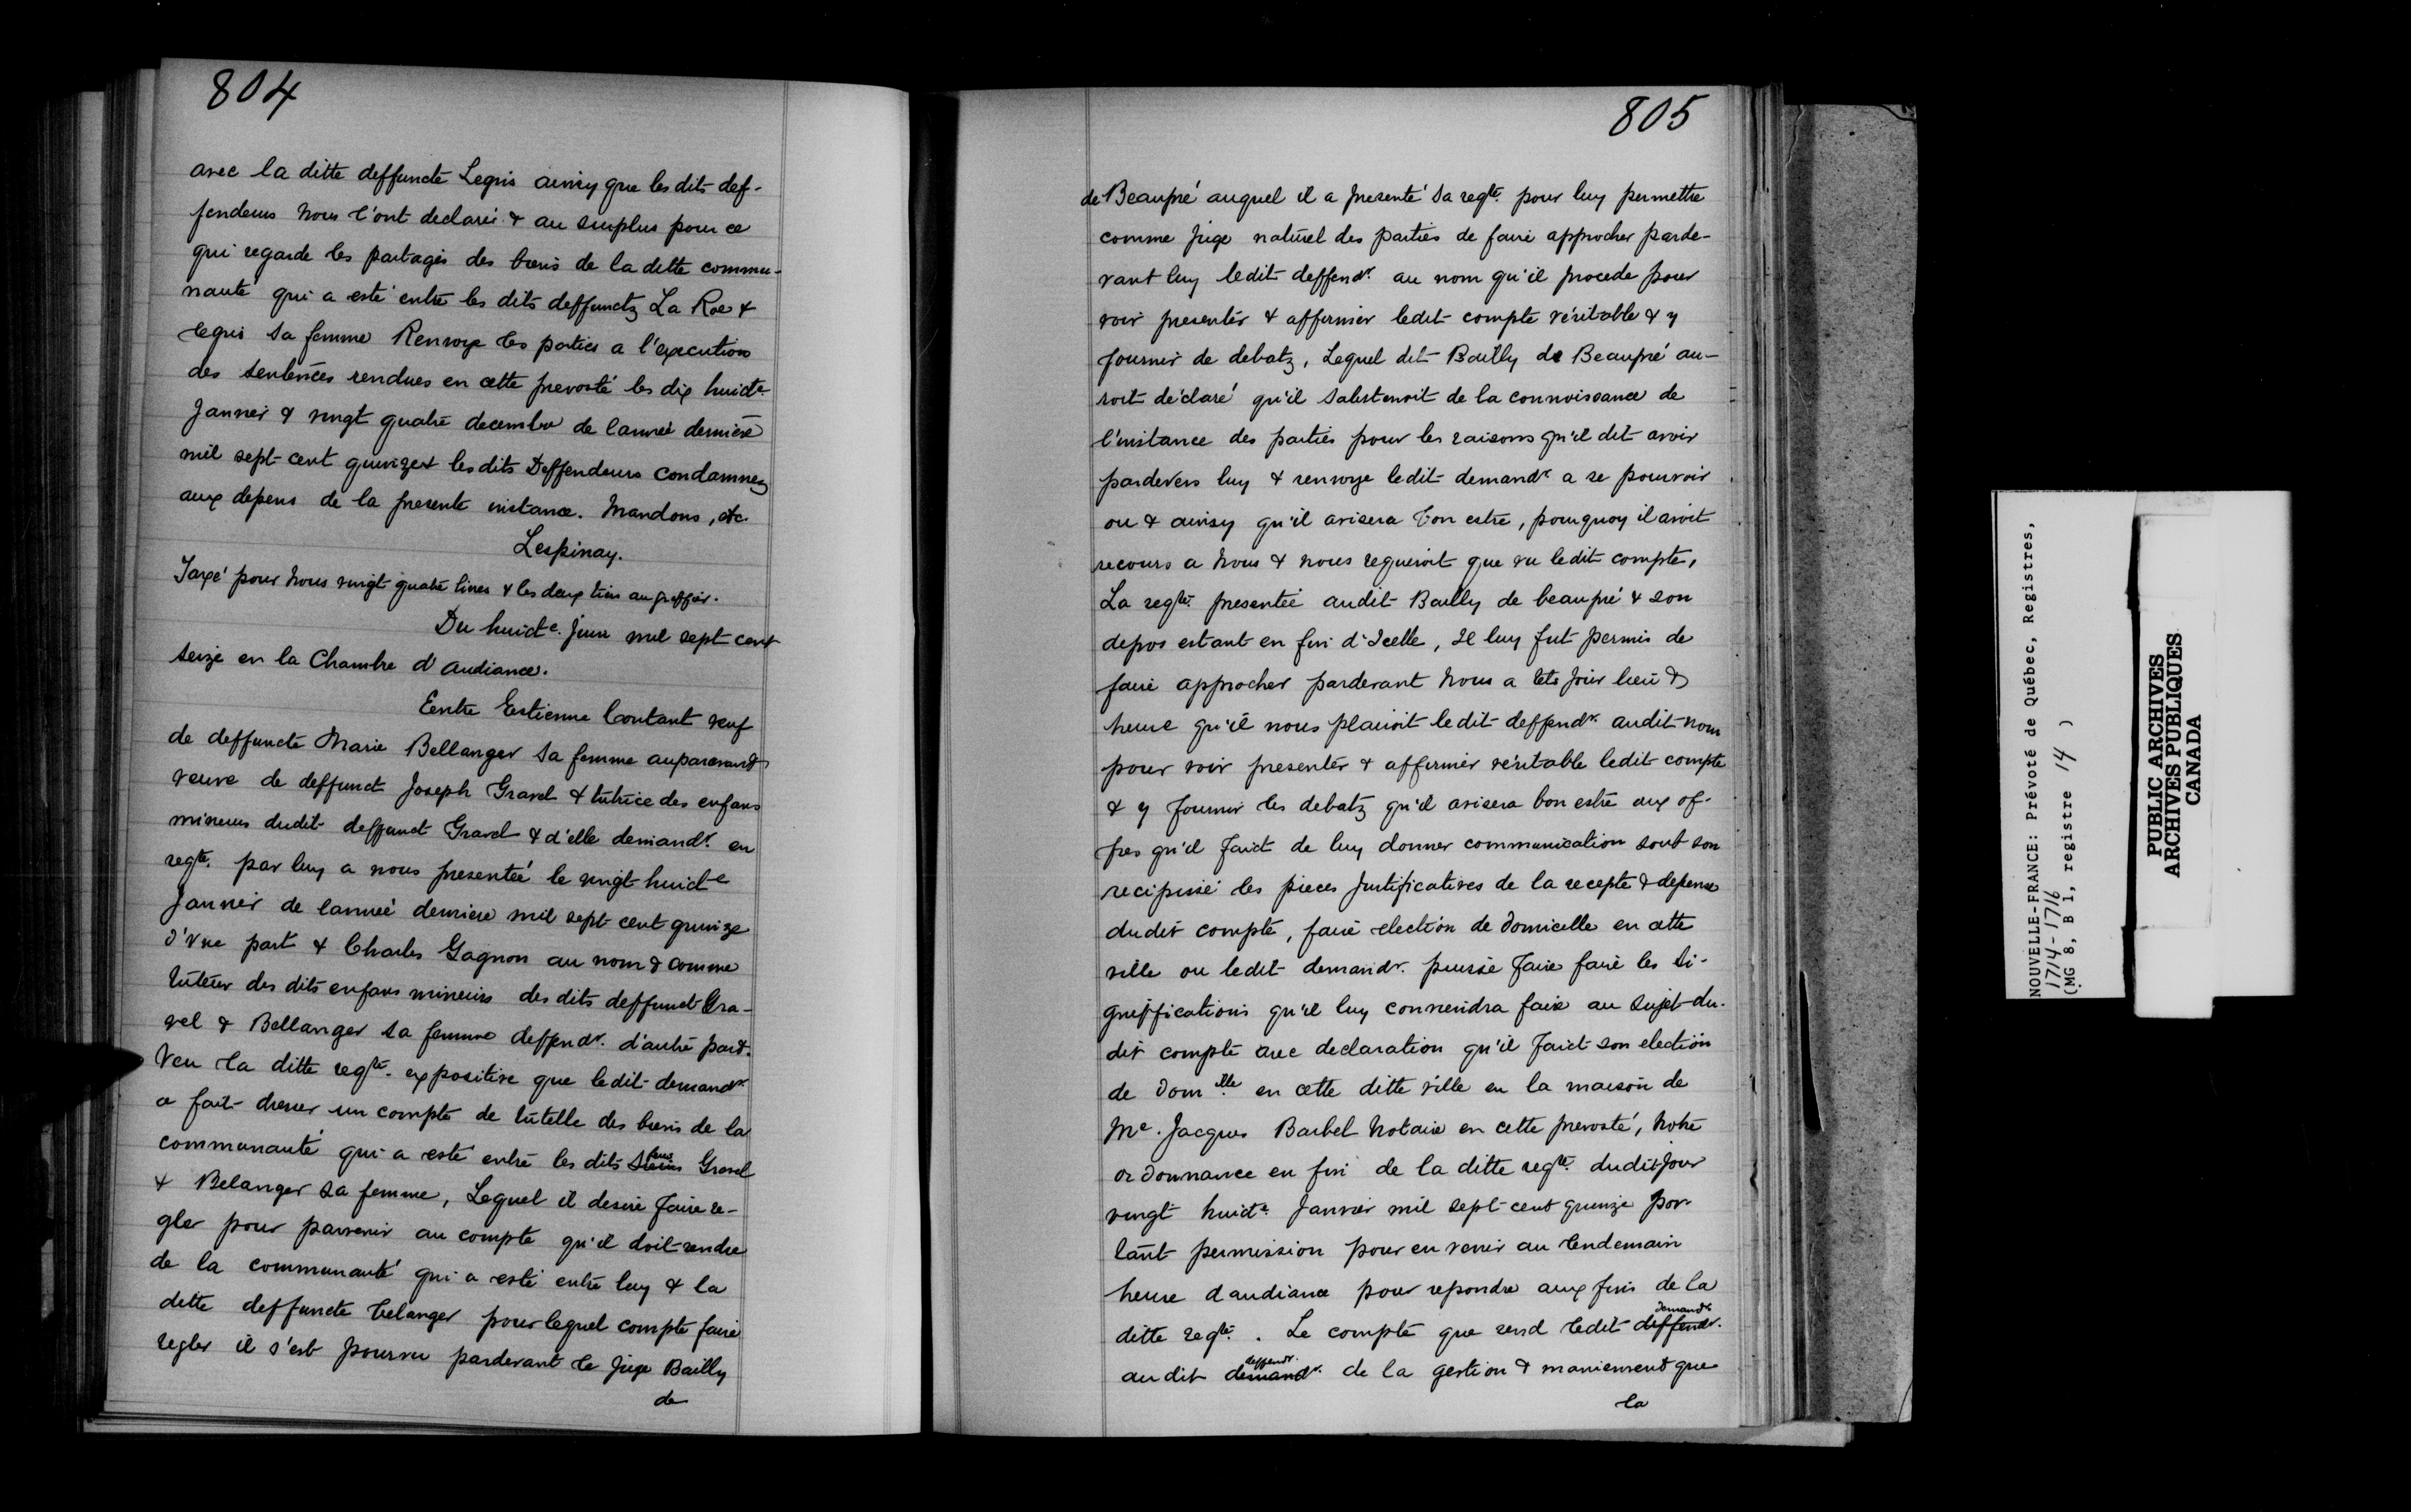 804
avec la ditte deffuncte Legris ainsy que les dits def-
fendeurs Nous l'ont declaré & au surplus pour ce
qui regarde les partages des biens de la ditte commu-
nauté qui a esté entre les dits deffunctz La Roe &
Legris sa femme Renvoye les parties a l'execution
des sentences rendues en cette prevosté les dix huicte.
Janvier & vingt quatre decembre de lannée derniere
mil sept cent quinze & les dits Deffendeurs condamnez
aux depens de la presente instance. Mandons, etc.
Lespinay.
Taxé pour Nous vingt quatre livres & les deux tiers au greffier.
Du huicte. Juin mil sept cent
seize en la Chambre d'audiance.
Eentre Estienne Contant veuf
de deffuncte Marie Bellanger sa femme auparavant
veuve de deffunct Joseph Gravel & tutrice des enfans
mineurs dudit deffunct Gravel & d'elle demandr. en
reqte. par luy a nous presentée le vingt huicte
Janvier de lannée derniere mil sept cent quinze
d'vne part & Charles Gagnon au nom & comme
tuteur des dits enfans mineurs des dits deffunct Gra-
vel & Bellanger sa femme deffendr. d'autre part.
Veu la ditte reqte. expositive que ledit demandr.
a fait dresser un compte de tutelle des biens de la
communauté qui a esté entre les dits Gravel
& Belanger sa femme, Lequel il desire faire re-
gler pour parvenir au compte qu'il doit rendre
de la communauté qui a esté entre luy & la
ditte deffuncte belanger pour lequel compte faire
regler il s'est pourvu pardevant le Juge Bailly
de
805
de Beaupré auquel il a presenté sa reqte. pour luy permettre
comme Juge naturel des parties de faire approcher parde-
vant luy ledit deffendr. au nom qu'il procede pour
voir presenter & affirmer ledit compte véritable & y
fournir de debatz, Lequel dit Bailly de Beaupré au-
roit déclaré qu'il sabstenoit de la connoissance de
l'instance des parties pour les raisons qu'il dit avoir
pardevers luy & renvoye ledit demandr a se pourvoir
ou & ainsy qu'il avisera bon estre, pourquoy il avoit
recours a Nous & nous requeroit que vu ledit compte,
La reqte. presentée audit Bailly de beaupré & son
depos estant en fin d'Icelle, Il luy fut permis de
faire approcher pardevant Nous a tels jour lieu &
heure qu'il nous plairoit ledit deffendr. audit nom
pour voir presenter & affirmer véritable ledit compte
& y fournir les debatz qu'il avisera bon estre aux of-
fres qu'il faict de luy donner communication sout son
recipissé les pieces justificatives de la recepte & depense
dudit compte, faire election de domicille en cette
ville ou ledit demandr. puisse faire faire les si-
gniffications qu'il luy conviendra faire au sujet du-
dit compte avec declaration qu'il faict son election
de domille. en cette ditte ville en la maison de
Me. Jacques Barbel Notaire en cette prevosté, Notre
ordonnance en fin de la ditte reqte. dudit Jour
vingt huicte. Janvier mil sept cent quinze por-
tant permission pour en venir au lendemain
heure daudiance pour repondre aux fins de la
ditte reqte. . Le compte que rend ledit deffendr. demandr
audit demandr. deffendr. de la gestion & maniement que
la
NOUVELLE-FRANCE: Prévoté de Québec, Registres,
1714-1716
(MG 8, B 1, registre 14 )
PUBLIC ARCHIVES
ARCHIVES PUBLIQUES
CANADA